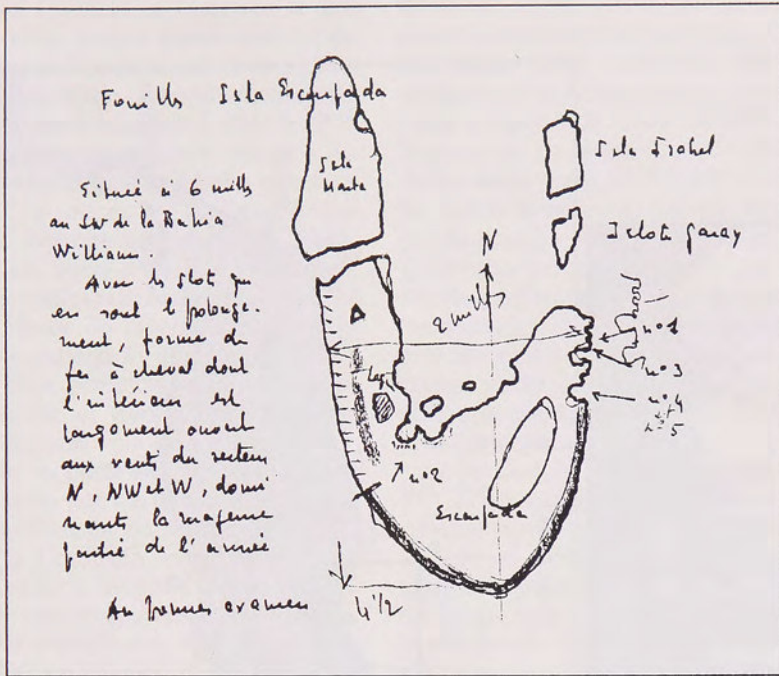 Fouilles Isla Escarpada
Située à 6 milles
au SW de la Bahia
Williams.
Avec les îlots qui
en sont le prolonge-
ment, forme de
fer à cheval dont
l'intérieur est
largement ouvert
aux vents du secteur
N, NW et W, domi
nants la majeure
partie de l'année
Au premier examen
Isla
Marta
Isla Isabel
Islote Garay
N
2 milles
n°1
n°3
n°4
n°5
n°2
Escarpada
4 1/2